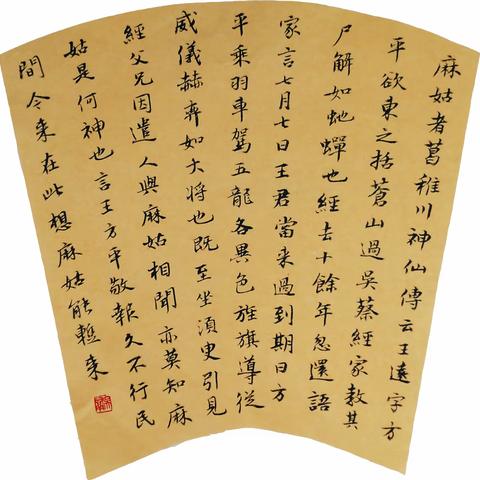 麻姑者葛稚川神仙傳云王遠字方
平欲東之括蒼山過吳蔡經家教其
尸解如虵蟬也經去十餘年忽還語
家言七月七日王君當来過到期日方
平乘羽車駕五龍各異色旌旗導從
威儀赫弈如大將也既至坐須臾引見
經父兄因遣人與麻姑相聞亦莫知麻
姑是何神也言王方平敬報久不行民
間今来在此想麻姑能蹔来